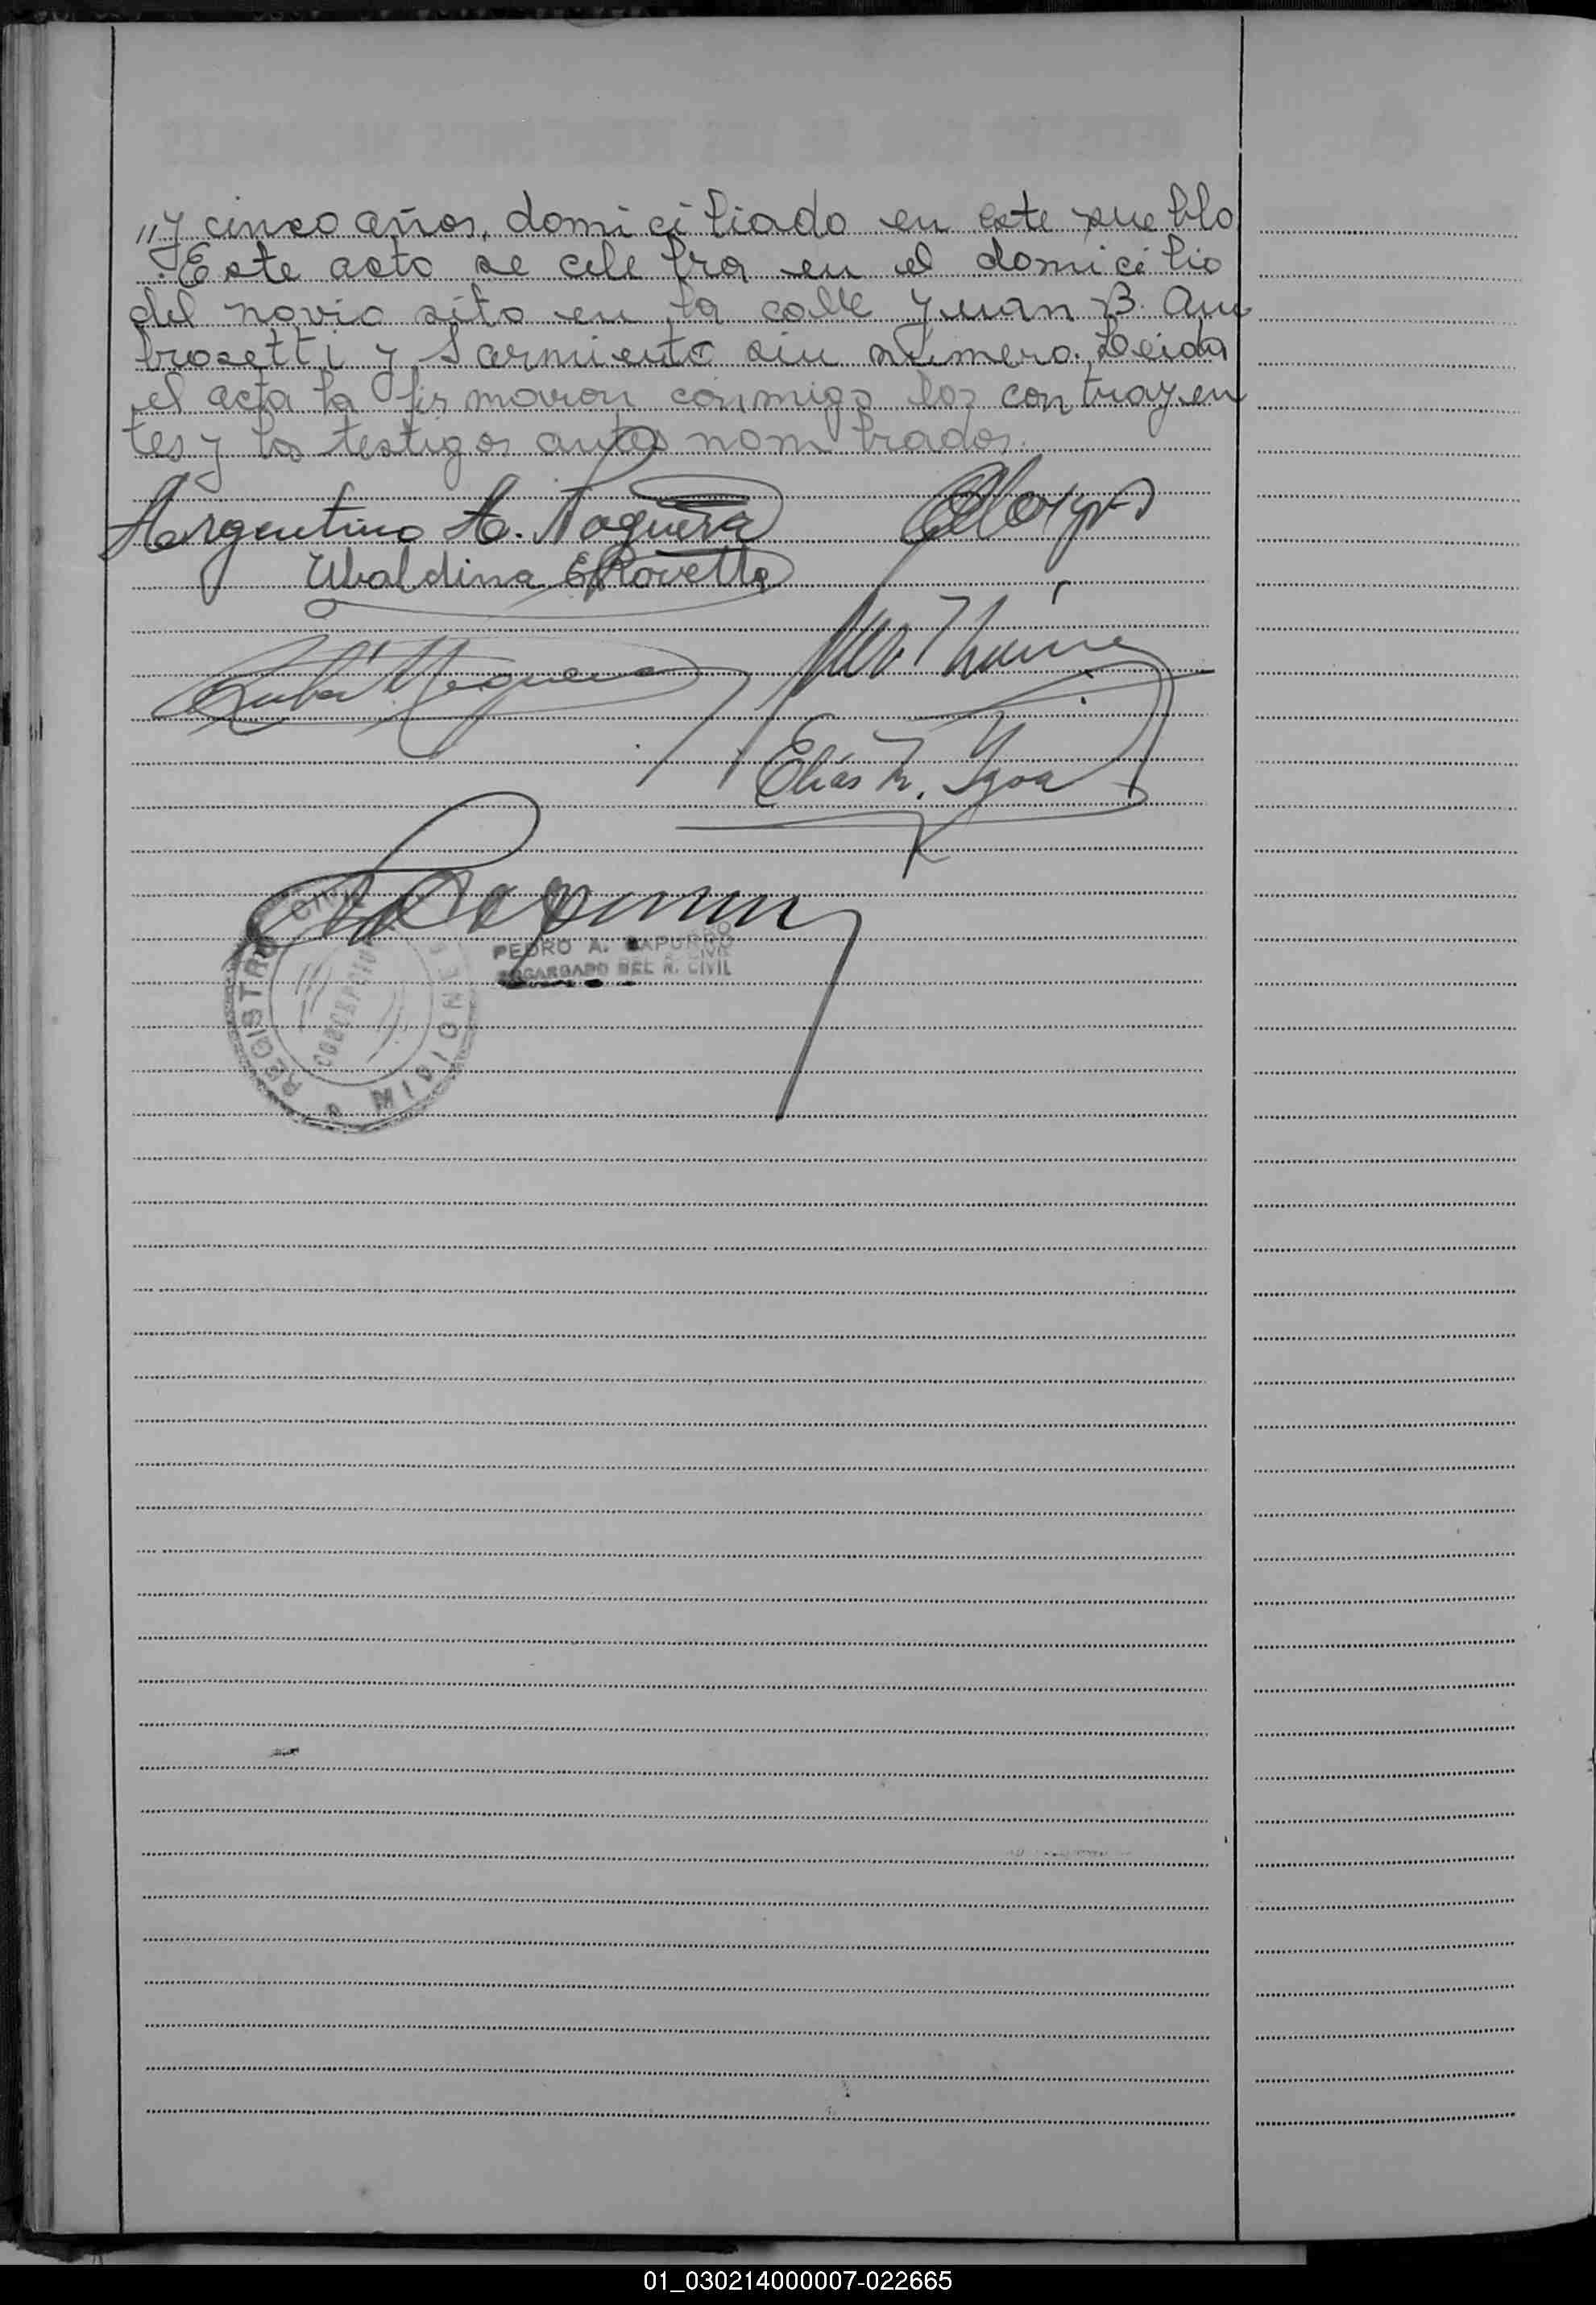 „y cinco años, domiciliado en este pueblo
. Este acto se celebra en el domicilio
del novio sito en la calle Juan B. Am
brosetti y Sarmiento sin número. Leida
el acta la firmaron conmigo los contrayen
tes y los testigos antes nombrados.
Argentino A. Noguera
Ubaldina E Rovetta
Noguera
Elías
PEDRO A. CAPURRO
ENCARGADO DEL R. CIVIL
REGISTRO CIVIL
CONCEPCION
MISIONES
01_030214000007-022665